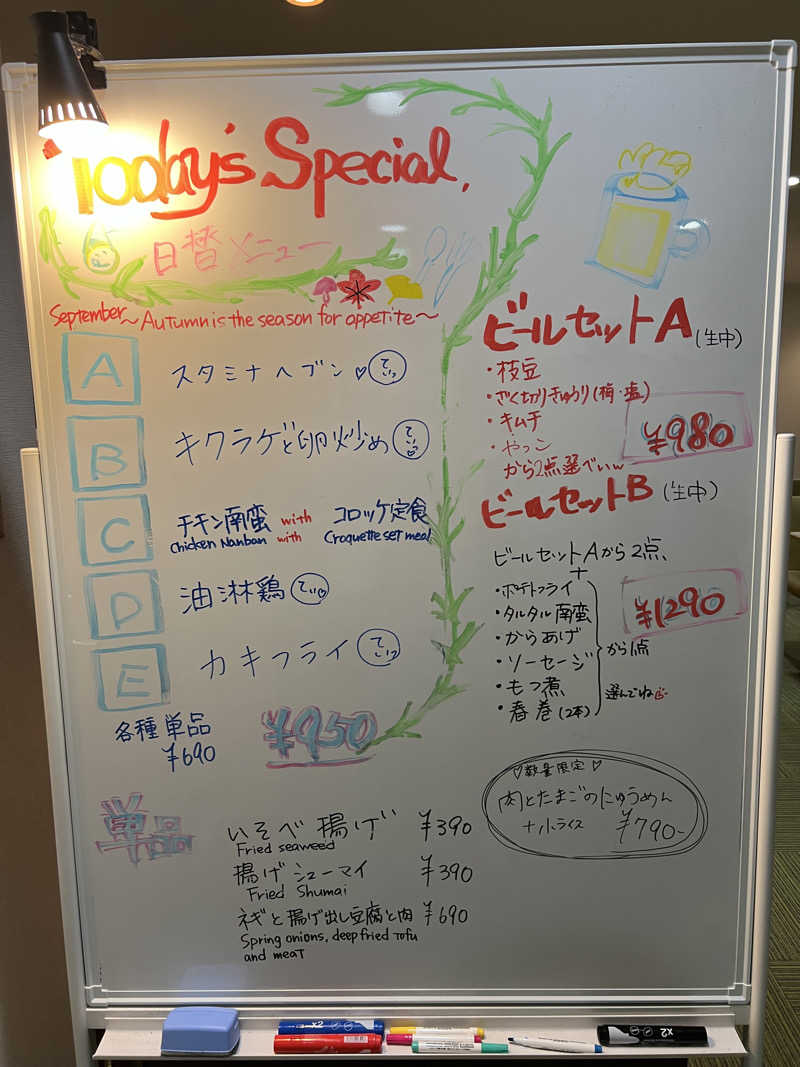 Today's Special.
日替メニュー
September〜Autumn is the season for appetite〜
A スタミナヘブン♡ てぃっ
B キクラゲと卵炒め てぃっ
C チキン南蛮 with コロッケ定食
Chicken Nanban with Croquette set meal
D 油淋鶏 てぃ♡
E カキフライ てぃっ
各種単品
¥690
¥950
単品
いそべ揚げ ¥390
Fried seaweed
揚げシューマイ ¥390
Fried Shumai
ネギと揚げ出し豆腐と肉 ¥690
Spring onions, deep fried Tofu
and meat
ビールセットA(生中)
・枝豆
・ざく切りきゅうり(梅・塩)
・キムチ
・やっこ
から2点選べぃw
¥980
ビールセットB(生中)
ビールセットAから2点、
+
・ポテトフライ
・タルタル南蛮
・からあげ
・ソーセージ
・もつ煮
・春巻(2本)
から1点
選んでね
¥1290
♡数量限定♡
肉とたまごのにゅうめん
+小ライス ¥790-
x2
x2